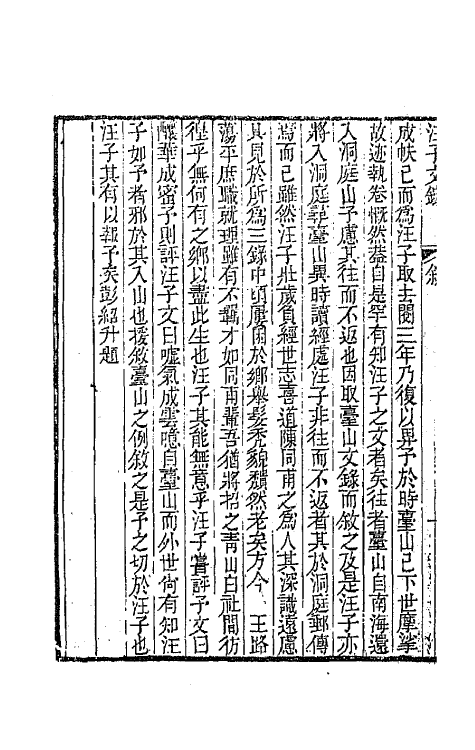 汪子文錄　敘
成帙已而爲汪子取去閱三年乃復以畀予於時臺山已下世摩挲
故迹執卷慨然蓋自是罕有知汪子之文者矣往者臺山自南海還
入洞庭山予慮其往而不返也因取臺山文錄而敘之及是汪子亦
將入洞庭尋臺山異時讀經處汪子非往而不返者其於洞庭郵傳
焉而已雖然汪子壯歲負經世志喜道陳同甫之爲人其深識遠慮
具見於所爲三錄中頃屢困於鄉舉髮禿貌頹然老矣方今　王路
蕩平庶職就理雖有不羈才如同甫輩吾猶將招之青山白社間彷
徨乎無何有之鄉以盡此生也汪子其能無意乎汪子嘗評予文曰
釀華成蜜予則評汪子文曰噓氣成雲噫自臺山而外世尙有知汪
子如予者邪於其入山也援敘臺山之例敘之是予之切於汪子也
汪子其有以報予矣彭紹升題